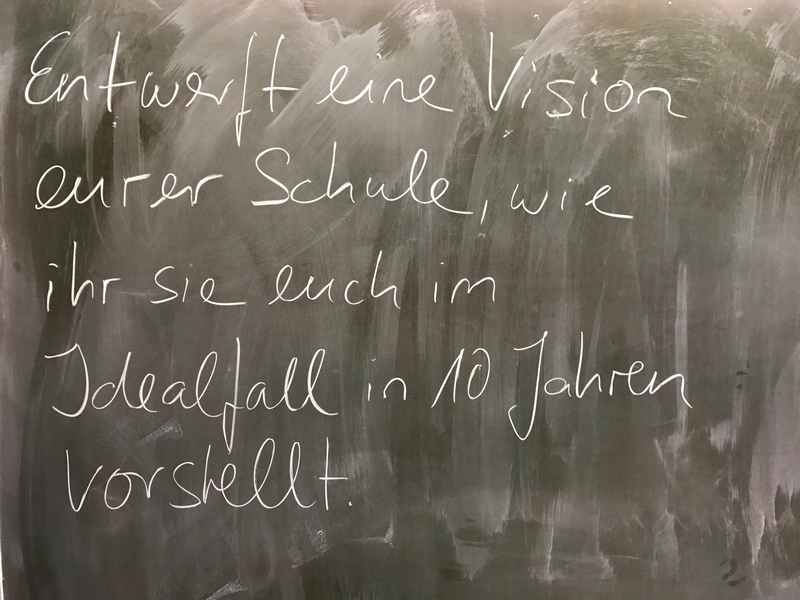 Entwerft eine Vision
eurer Schule, wie
ihr sie euch im
Idealfall in 10 Jahren
vorstellt.